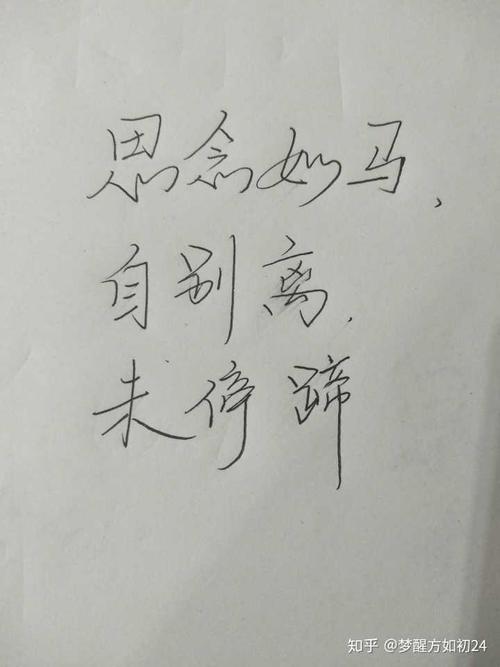 思念如马，
自别离，
未停蹄
知乎 @梦醒方如初24